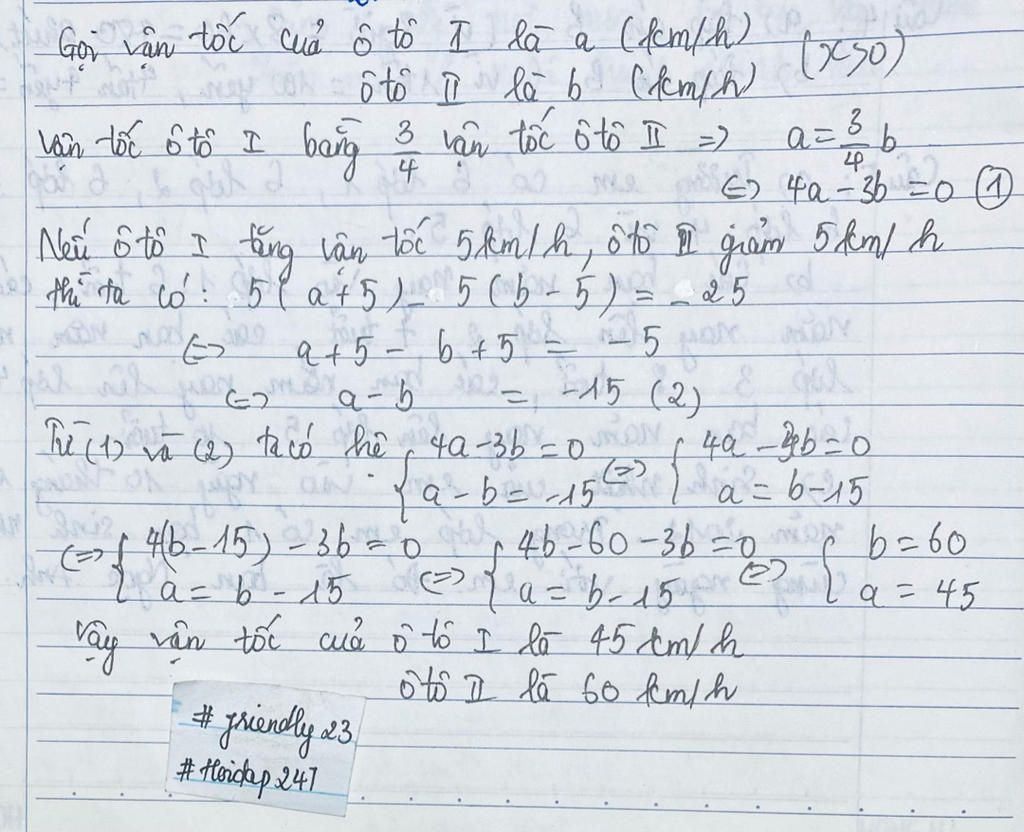 Gọi vận tốc của ô tô I là a (km/h) (x>0)
ô tô II là b (km/h)
vận tốc ô tô I bằng 3/4 vận tốc ô tô II => a = 3/4 b
<=> 4a - 3b = 0 (1)
Nếu ô tô I tăng vận tốc 5km/h, ô tô II giảm 5km/h
thì ta có: 5(a+5) - 5(b-5) = -25
<=> a+5 - b+5 = -5
<=> a-b = -15 (2)
Từ (1) và (2) ta có hệ { 4a-3b=0 <=> { 4a-3b=0
a-b=-15 a=b-15
<=> { 4(b-15)-3b=0 <=> { 4b-60-3b=0 <=> { b=60
a=b-15 a=b-15 a=45
Vậy vận tốc của ô tô I là 45 km/h
ô tô II là 60 km/h
# friendly23
# Hoidap247